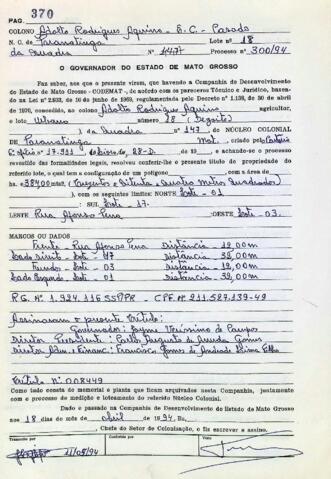 PAG. 370
COLONO Adolto Rodrigues Aquino - B.C. - Casado
N. C. de Paranatinga Lote n.º 18
da Quadra N.º 447 Processo n.º 300/94
O GOVERNADOR DO ESTADO DE MATO GROSSO
Faz saber, aos que o presente virem, que havendo a Companhia de Desenvolvimento
do Estado de Mato Grosso - CODEMAT -, de acordo com os pareceres Técnico e Jurídico, basea-
da na Lei n.º 2.
de 1970, concedido, ao colono Adolto Rodrigues Aquino, agricultor,
o Lote Urbano n.º 18 (Dezoito)
da Quadra n.º 147 do NÚCLEO COLONIAL
de Paranatinga Mat. , criado pelo
6º Ofício nº 17.911 28-D. de 19 , e achando-se o processo
revestido das formalidades legais, resolveu conferir-lhe o presente título de propriedade do
referido lote, o qual tem a configuração de um polígono com a área de
, com os seguintes limites: NORTE Lote - 01
SUL Lote - 17.
LESTE Rua Afonso Pena OESTE Lote - 03.
MARCOS OU DADOS
Frente - Rua Afonso Pena Distância - 12,00m
Lado Direito - Lote - 17 Distância - 32,00m
Fundos - Lote - 03 Distância - 12,00m
Lado Esquerdo - Lote - 01 Distância - 32,00m
R.G. Nº 1.924.116 SSP/PR - CPF Nº 211.527.139-49
Assinaram o presente Título:
Governador: Jayme Veríssimo de Campos
Diretor Presidente: Carlos Augusto de Arruda Gomes
Diretor Adm. e Financ: Francisco Gomes de Andrade Lima Filho
Título Nº 008449
Como tudo consta do memorial e planta que ficam arquivados nesta Companhia, juntamente
com o processo de medição e loteamento do referido Núcleo Colonial.
Dado e passado na Companhia de Desenvolvimento do Estado de Mato Grosso
aos 18 dias do mês de abril de 1994. Eu,
, Chefe do Setor de Colonização, o fiz escrever e assino.
Transcrito por Conferido por Visto
11/05/94